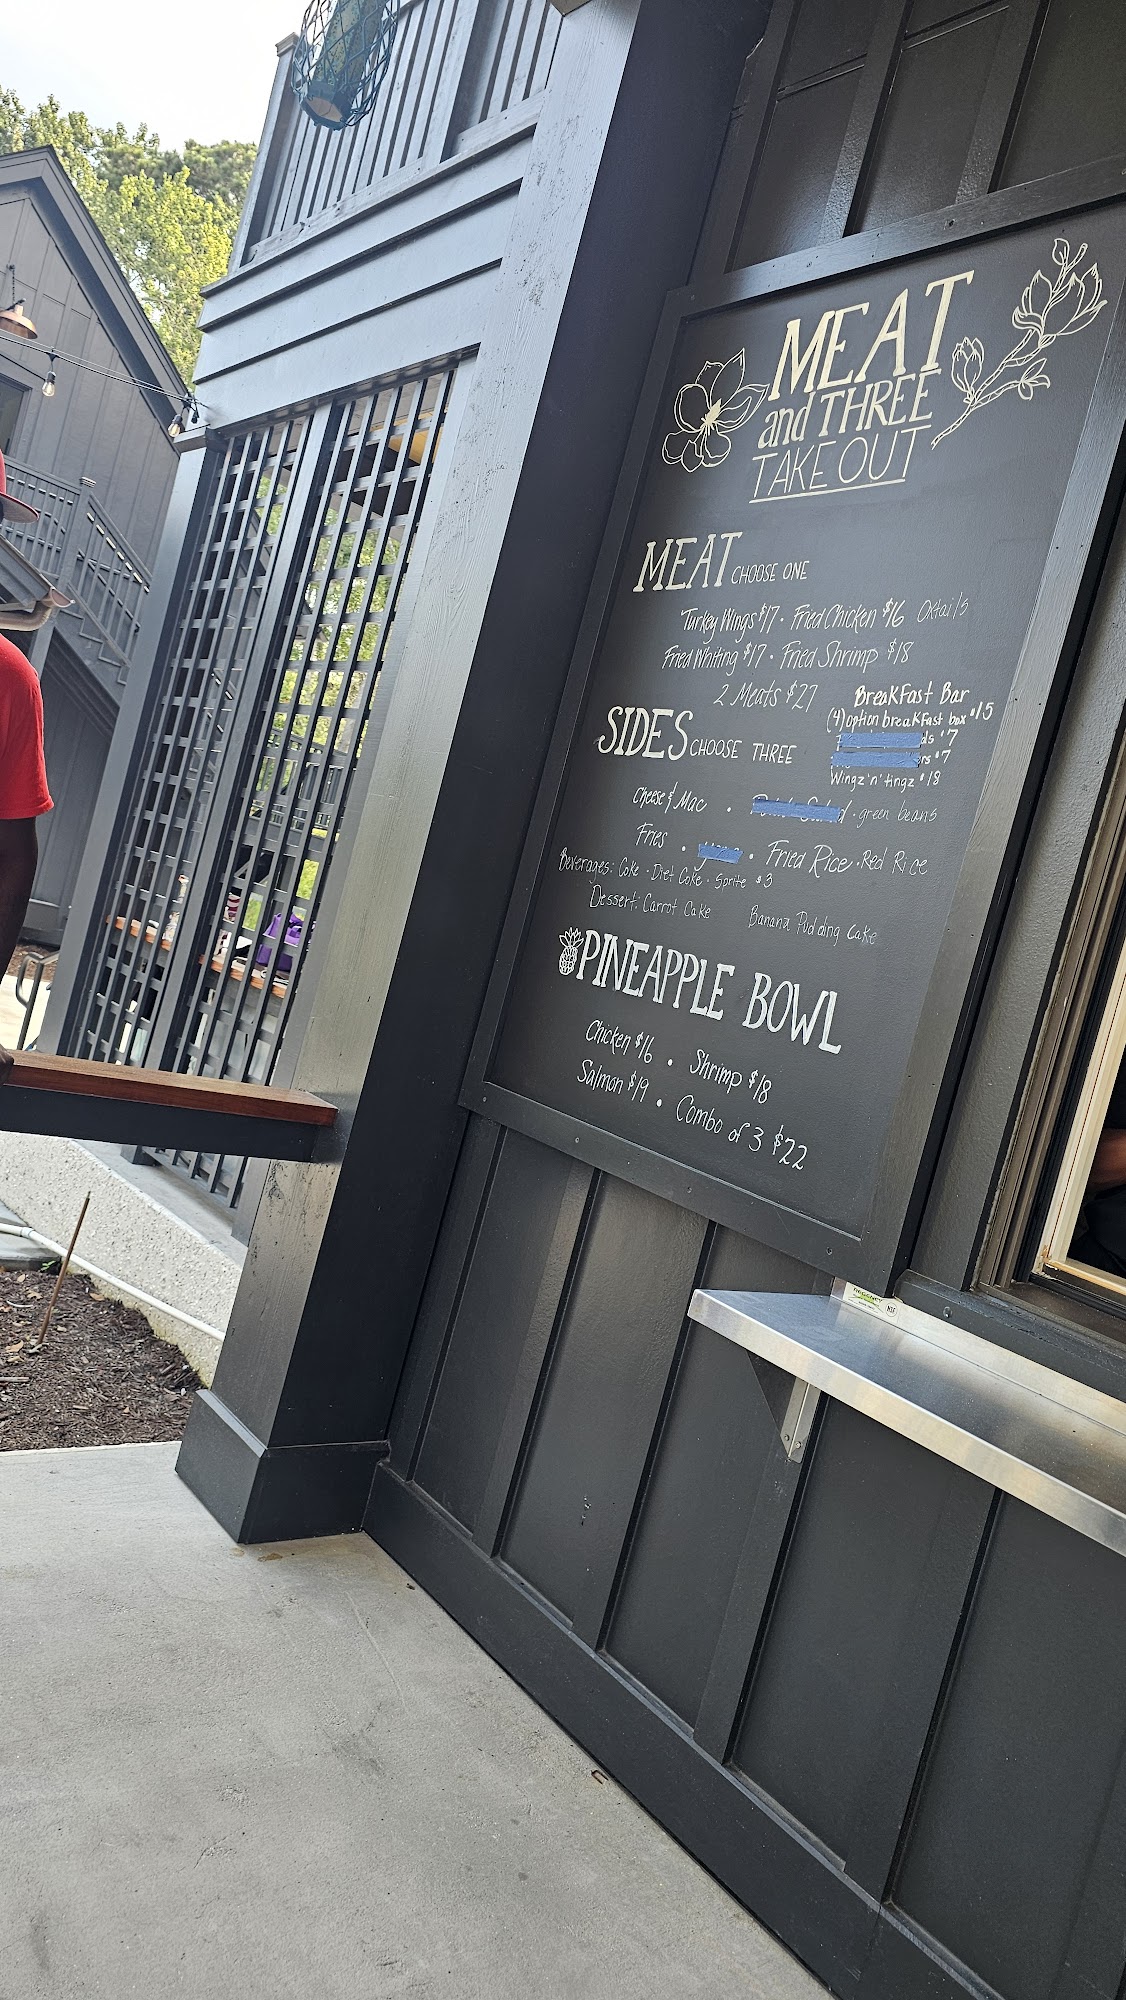 MEAT
and THREE
TAKE OUT
MEAT CHOOSE ONE
Turkey Wings $17 • Fried Chicken $16 Oxtails
Fried Whiting $17 • Fried Shrimp $18
2 Meats $27
BreakFast Bar
(4) option breakFast box $15
ds $7
rs $7
Wingz 'n' tingz $18
SIDES CHOOSE THREE
Cheese & Mac • d • green beans
Fries • • Fried Rice • Red Rice
Beverages: Coke • Diet Coke • Sprite $3
Dessert: Carrot Cake Banana Pudding Cake
PINEAPPLE BOWL
Chicken $16 • Shrimp $18
Salmon $19 • Combo of 3 $22